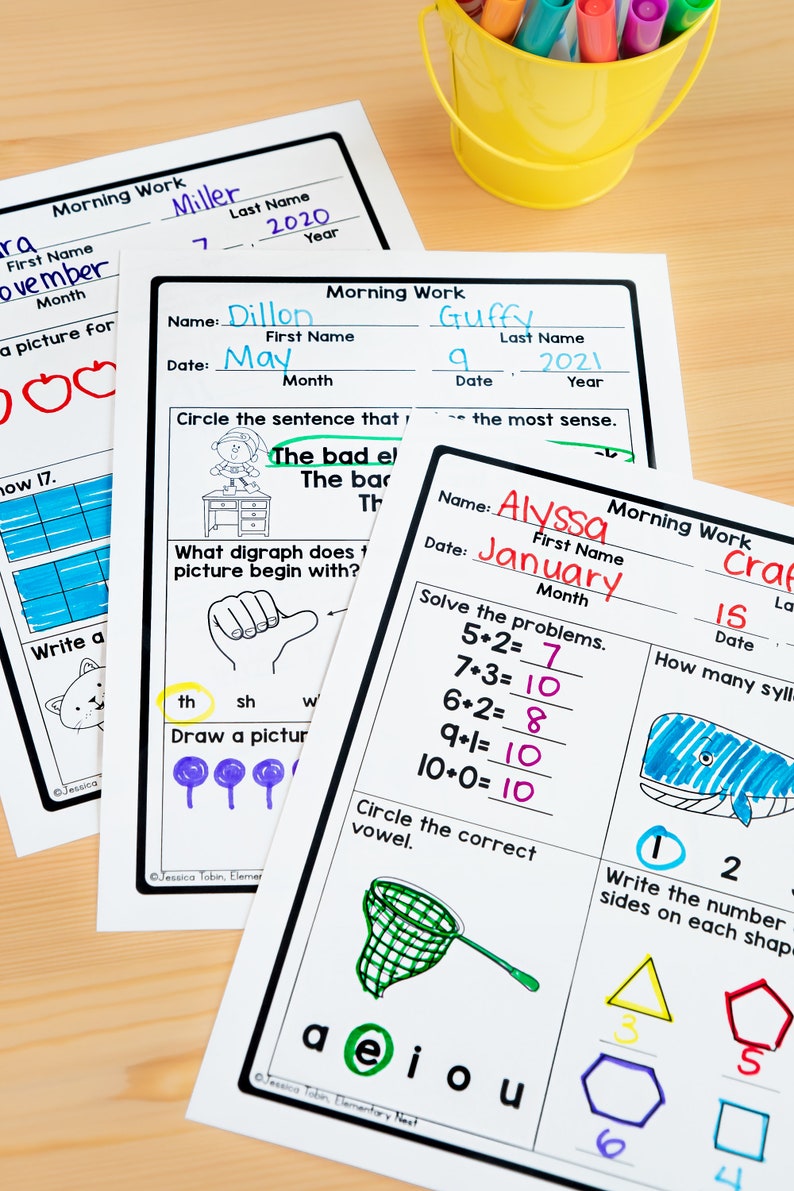 Morning Work
Miller
First Name Last Name
7, 2020
Month Year
a picture for
17.
Write a
©Jessica
Morning Work
Name: Dillon Guffy
First Name Last Name
Date: May 9, 2021
Month Date Year
Circle the sentence that the most sense.
The bad
The bad
What digraph does
picture begin with?
th sh
Draw a
©Jessica Tobin,
Morning Work
Name: Alyssa
First Name
Date: January 15
Month Date
Solve the problems.
5+2= 7
7+3= 10
6+2= 8
9+1= 10
10+0= 10
How many
1 2
Circle the correct
vowel.
a e i o u
Write the number
sides on each
3 5
6 4
©Jessica Tobin, Elementary Nest